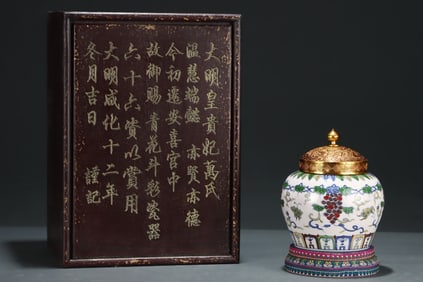 大明皇貴妃萬氏
溫慧端懿 亦賢亦德
今初遷安喜宮中
故御賜青花斗彩瓷器
六十六賫以賞用
大明成化十二年
冬月吉日 謹記